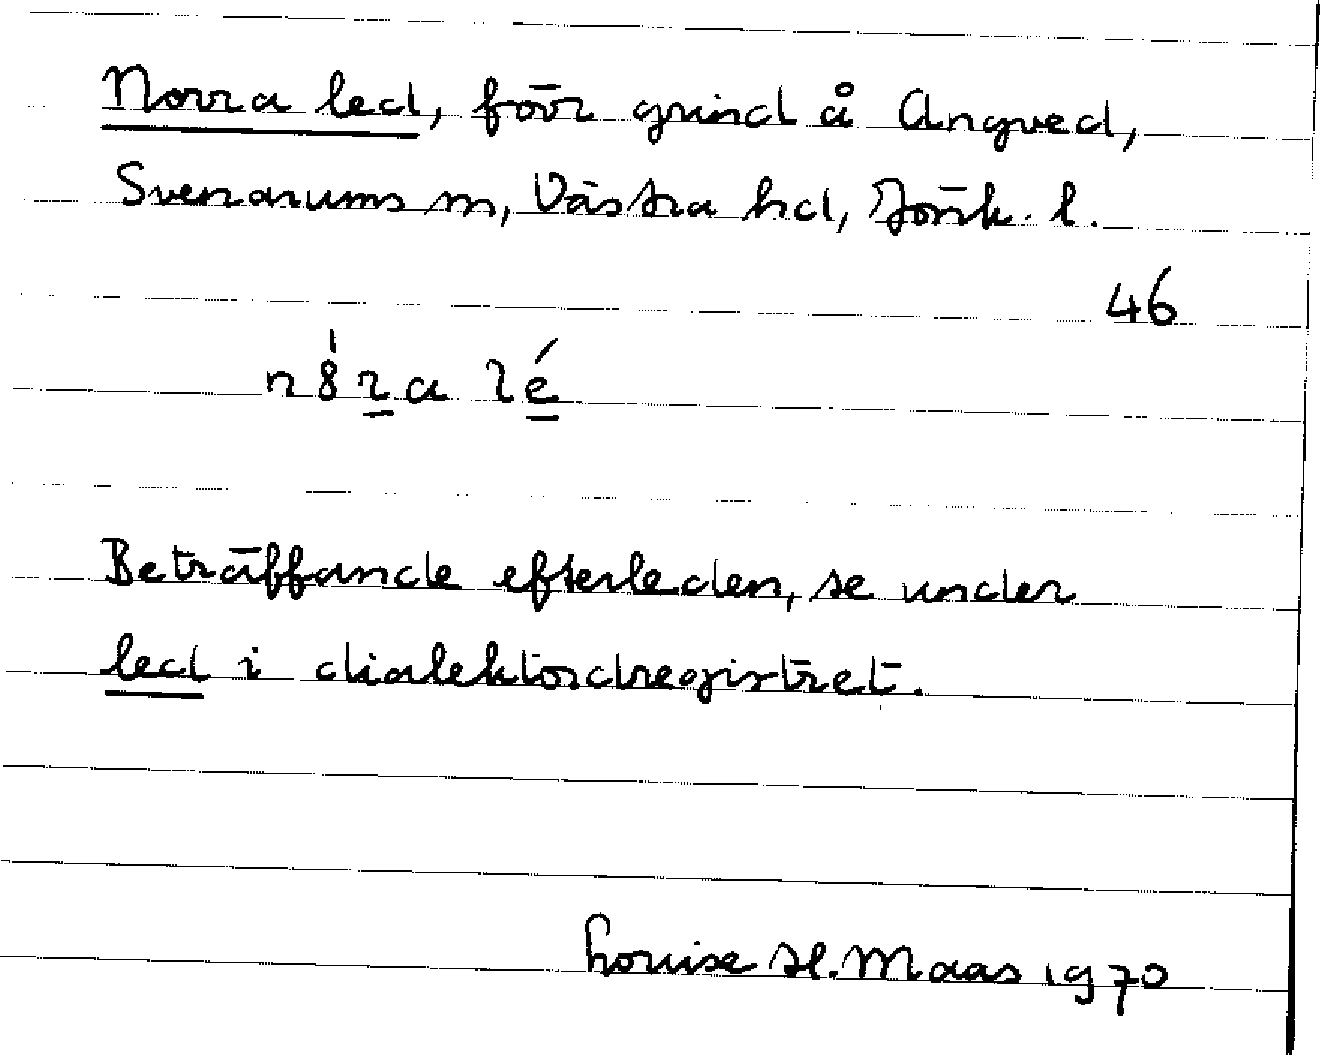 Norra led, förr grind å Angved,
Svenarums sn, Västra hd, Jönk. l.
46
n8́ra lé
Beträffande efterleden, se under
led i dialektordregistret.
Louise H. Maas 1970